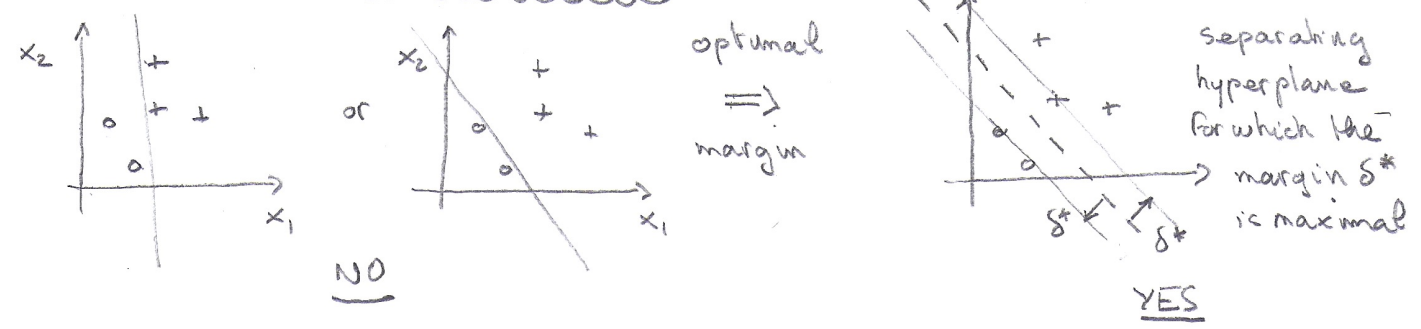 x₂
x₁
or
x₂
x₁
NO
optimal
⇒
margin
δ* δ*
separating
hyperplane
for which the
margin δ*
is maximal
YES